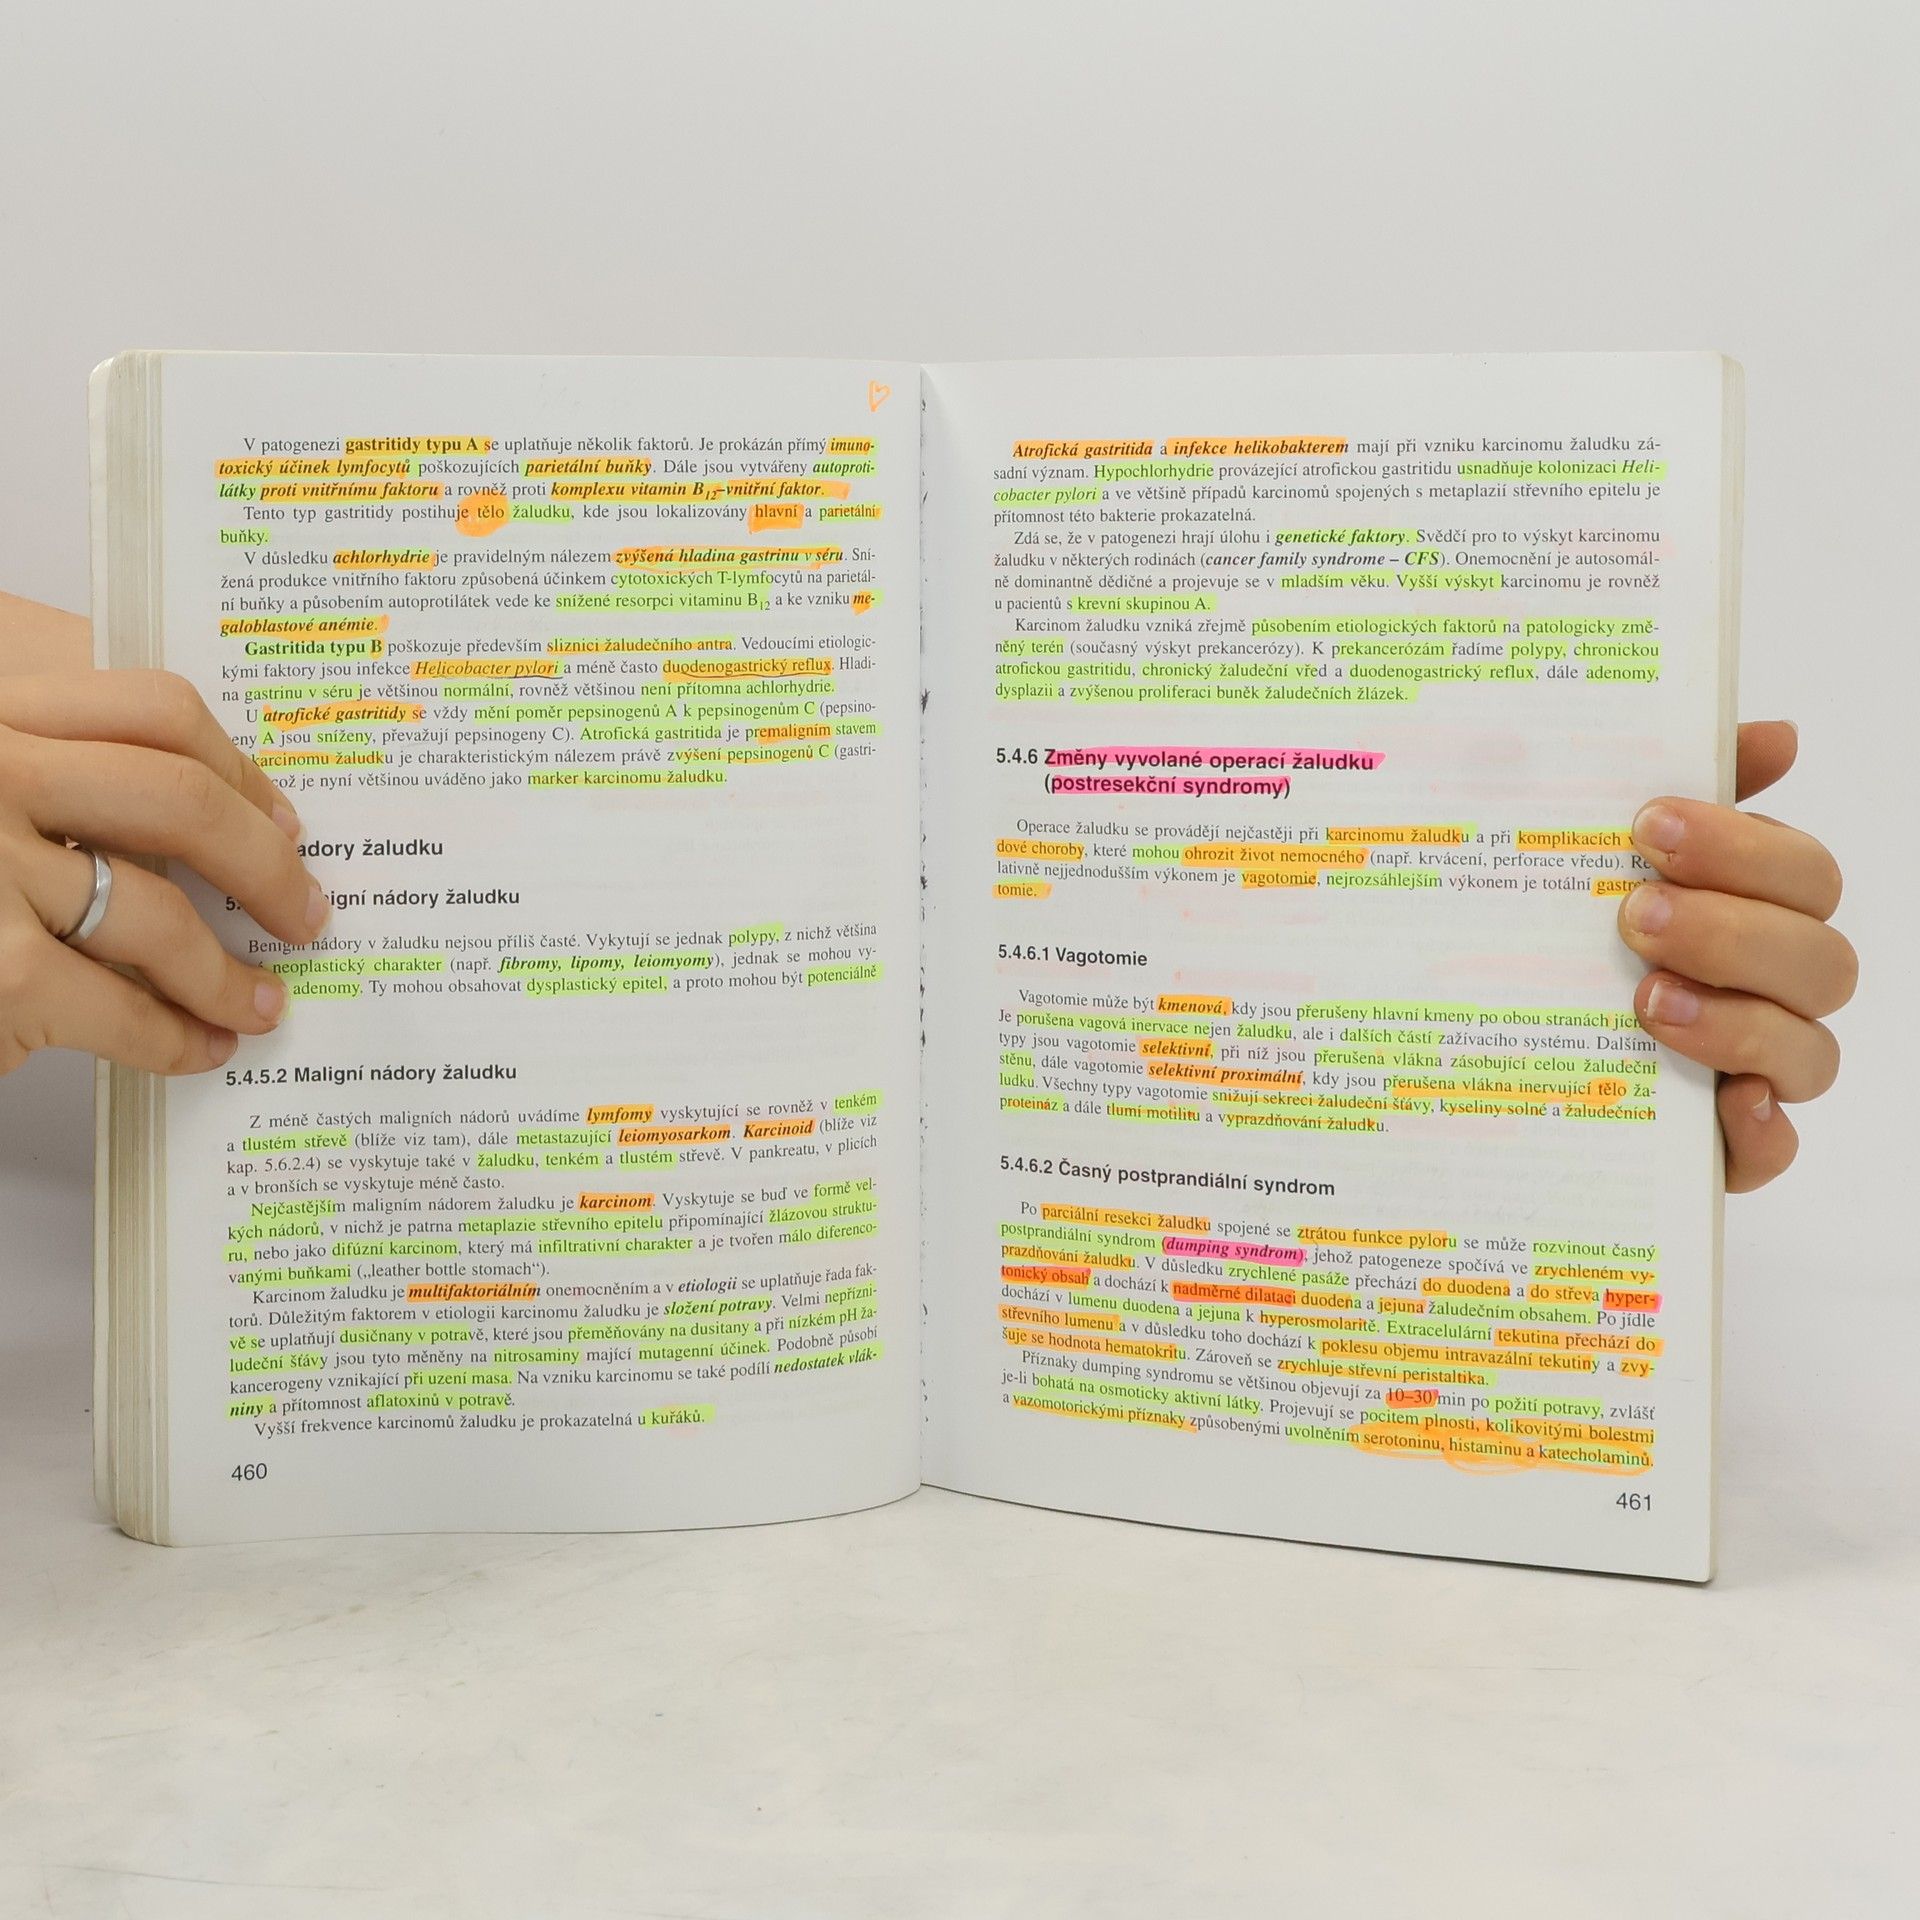 V patogenezi gastritidy typu A se uplatňuje několik faktorů. Je prokázán přímý imuno-
toxický účinek lymfocytů poškozujících parietální buňky. Dále jsou vytvářeny autoproti-
látky proti vnitřnímu faktoru a rovněž proti komplexu vitamin B12–vnitřní faktor.
Tento typ gastritidy postihuje tělo žaludku, kde jsou lokalizovány hlavní a parietální
buňky.
V důsledku achlorhydrie je pravidelným nálezem zvýšená hladina gastrinu v séru. Sní-
žená produkce vnitřního faktoru způsobená účinkem cytotoxických T-lymfocytů na parietál-
ní buňky a působením autoprotilátek vede ke snížené resorpci vitaminu B12 a ke vzniku me-
galoblastové anémie.
Gastritida typu B poškozuje především sliznici žaludečního antra. Vedoucími etiologic-
kými faktory jsou infekce Helicobacter pylori a méně často duodenogastrický reflux. Hladi-
na gastrinu v séru je většinou normální, rovněž většinou není přítomna achlorhydrie.
U atrofické gastritidy se vždy mění poměr pepsinogenů A k pepsinogenům C (pepsino-
eny A jsou sníženy, převažují pepsinogeny C). Atrofická gastritida je premaligním stavem
karcinomu žaludku je charakteristickým nálezem právě zvýšení pepsinogenů C (gastri-
což je nyní většinou uváděno jako marker karcinomu žaludku.
adory žaludku
5. igní nádory žaludku
Benigní nádory v žaludku nejsou příliš časté. Vykytují se jednak polypy, z nichž většina
neoplastický charakter (např. fibromy, lipomy, leiomyomy), jednak se mohou vy-
adenomy. Ty mohou obsahovat dysplastický epitel, a proto mohou být potenciálně
5.4.5.2 Maligní nádory žaludku
Z méně častých maligních nádorů uvádíme lymfomy vyskytující se rovněž v tenkém
a tlustém střevě (blíže viz tam), dále metastazující leiomyosarkom. Karcinoid (blíže viz
kap. 5.6.2.4) se vyskytuje také v žaludku, tenkém a tlustém střevě. V pankreatu, v plicích
a v bronších se vyskytuje méně často.
Nejčastějším maligním nádorem žaludku je karcinom. Vyskytuje se buď ve formě vel-
kých nádorů, v nichž je patrna metaplazie střevního epitelu připomínající žlázovou struktu-
ru, nebo jako difúzní karcinom, který má infiltrativní charakter a je tvořen málo diferenco-
vanými buňkami („leather bottle stomach“).
Karcinom žaludku je multifaktoriálním onemocněním a v etiologii se uplatňuje řada fak-
torů. Důležitým faktorem v etiologii karcinomu žaludku je složení potravy. Velmi nepřízni-
vě se uplatňují dusičnany v potravě, které jsou přeměňovány na dusitany a při nízkém pH ža-
ludeční šťávy jsou tyto měněny na nitrosaminy mající mutagenní účinek. Podobně působí
kancerogeny vznikající při uzení masa. Na vzniku karcinomu se také podílí nedostatek vlák-
niny a přítomnost aflatoxinů v potravě.
Vyšší frekvence karcinomů žaludku je prokazatelná u kuřáků.
460
Atrofická gastritida a infekce helikobakterem mají při vzniku karcinomu žaludku zá-
sadní význam. Hypochlorhydrie provázející atrofickou gastritidu usnadňuje kolonizaci Heli-
cobacter pylori a ve většině případů karcinomů spojených s metaplazií střevního epitelu je
přítomnost této bakterie prokazatelná.
Zdá se, že v patogenezi hrají úlohu i genetické faktory. Svědčí pro to výskyt karcinomu
žaludku v některých rodinách (cancer family syndrome – CFS). Onemocnění je autosomál-
ně dominantně dědičné a projevuje se v mladším věku. Vyšší výskyt karcinomu je rovněž
u pacientů s krevní skupinou A.
Karcinom žaludku vzniká zřejmě působením etiologických faktorů na patologicky změ-
něný terén (současný výskyt prekancerózy). K prekancerózám řadíme polypy, chronickou
atrofickou gastritidu, chronický žaludeční vřed a duodenogastrický reflux, dále adenomy,
dysplazii a zvýšenou proliferaci buněk žaludečních žlázek.
5.4.6 Změny vyvolané operací žaludku
(postresekční syndromy)
Operace žaludku se provádějí nejčastěji při karcinomu žaludku a při komplikacích v
dové choroby, které mohou ohrozit život nemocného (např. krvácení, perforace vředu). Re
lativně nejjednodušším výkonem je vagotomie, nejrozsáhlejším výkonem je totální gastre
tomie.
5.4.6.1 Vagotomie
Vagotomie může být kmenová, kdy jsou přerušeny hlavní kmeny po obou stranách jícn
Je porušena vagová inervace nejen žaludku, ale i dalších částí zažívacího systému. Dalšími
typy jsou vagotomie selektivní, při níž jsou přerušena vlákna zásobující celou žaludeční
stěnu, dále vagotomie selektivní proximální, kdy jsou přerušena vlákna inervující tělo ža-
ludku. Všechny typy vagotomie snižují sekreci žaludeční šťávy, kyseliny solné a žaludečních
proteináz a dále tlumí motilitu a vyprazdňování žaludku.
5.4.6.2 Časný postprandiální syndrom
Po parciální resekci žaludku spojené se ztrátou funkce pyloru se může rozvinout časný
postprandiální syndrom (dumping syndrom), jehož patogeneze spočívá ve zrychleném vy-
prazdňování žaludku. V důsledku zrychlené pasáže přechází do duodena a do střeva hyper-
tonický obsah a dochází k nadměrné dilataci duodena a jejuna žaludečním obsahem. Po jídle
dochází v lumenu duodena a jejuna k hyperosmolaritě. Extracelulární tekutina přechází do
střevního lumenu a v důsledku toho dochází k poklesu objemu intravazální tekutiny a zvy-
šuje se hodnota hematokritu. Zároveň se zrychluje střevní peristaltika.
Příznaky dumping syndromu se většinou objevují za 10–30 min po požití potravy, zvlášť
je-li bohatá na osmoticky aktivní látky. Projevují se pocitem plnosti, kolikovitými bolestmi
a vazomotorickými příznaky způsobenými uvolněním serotoninu, histaminu a katecholaminů.
461